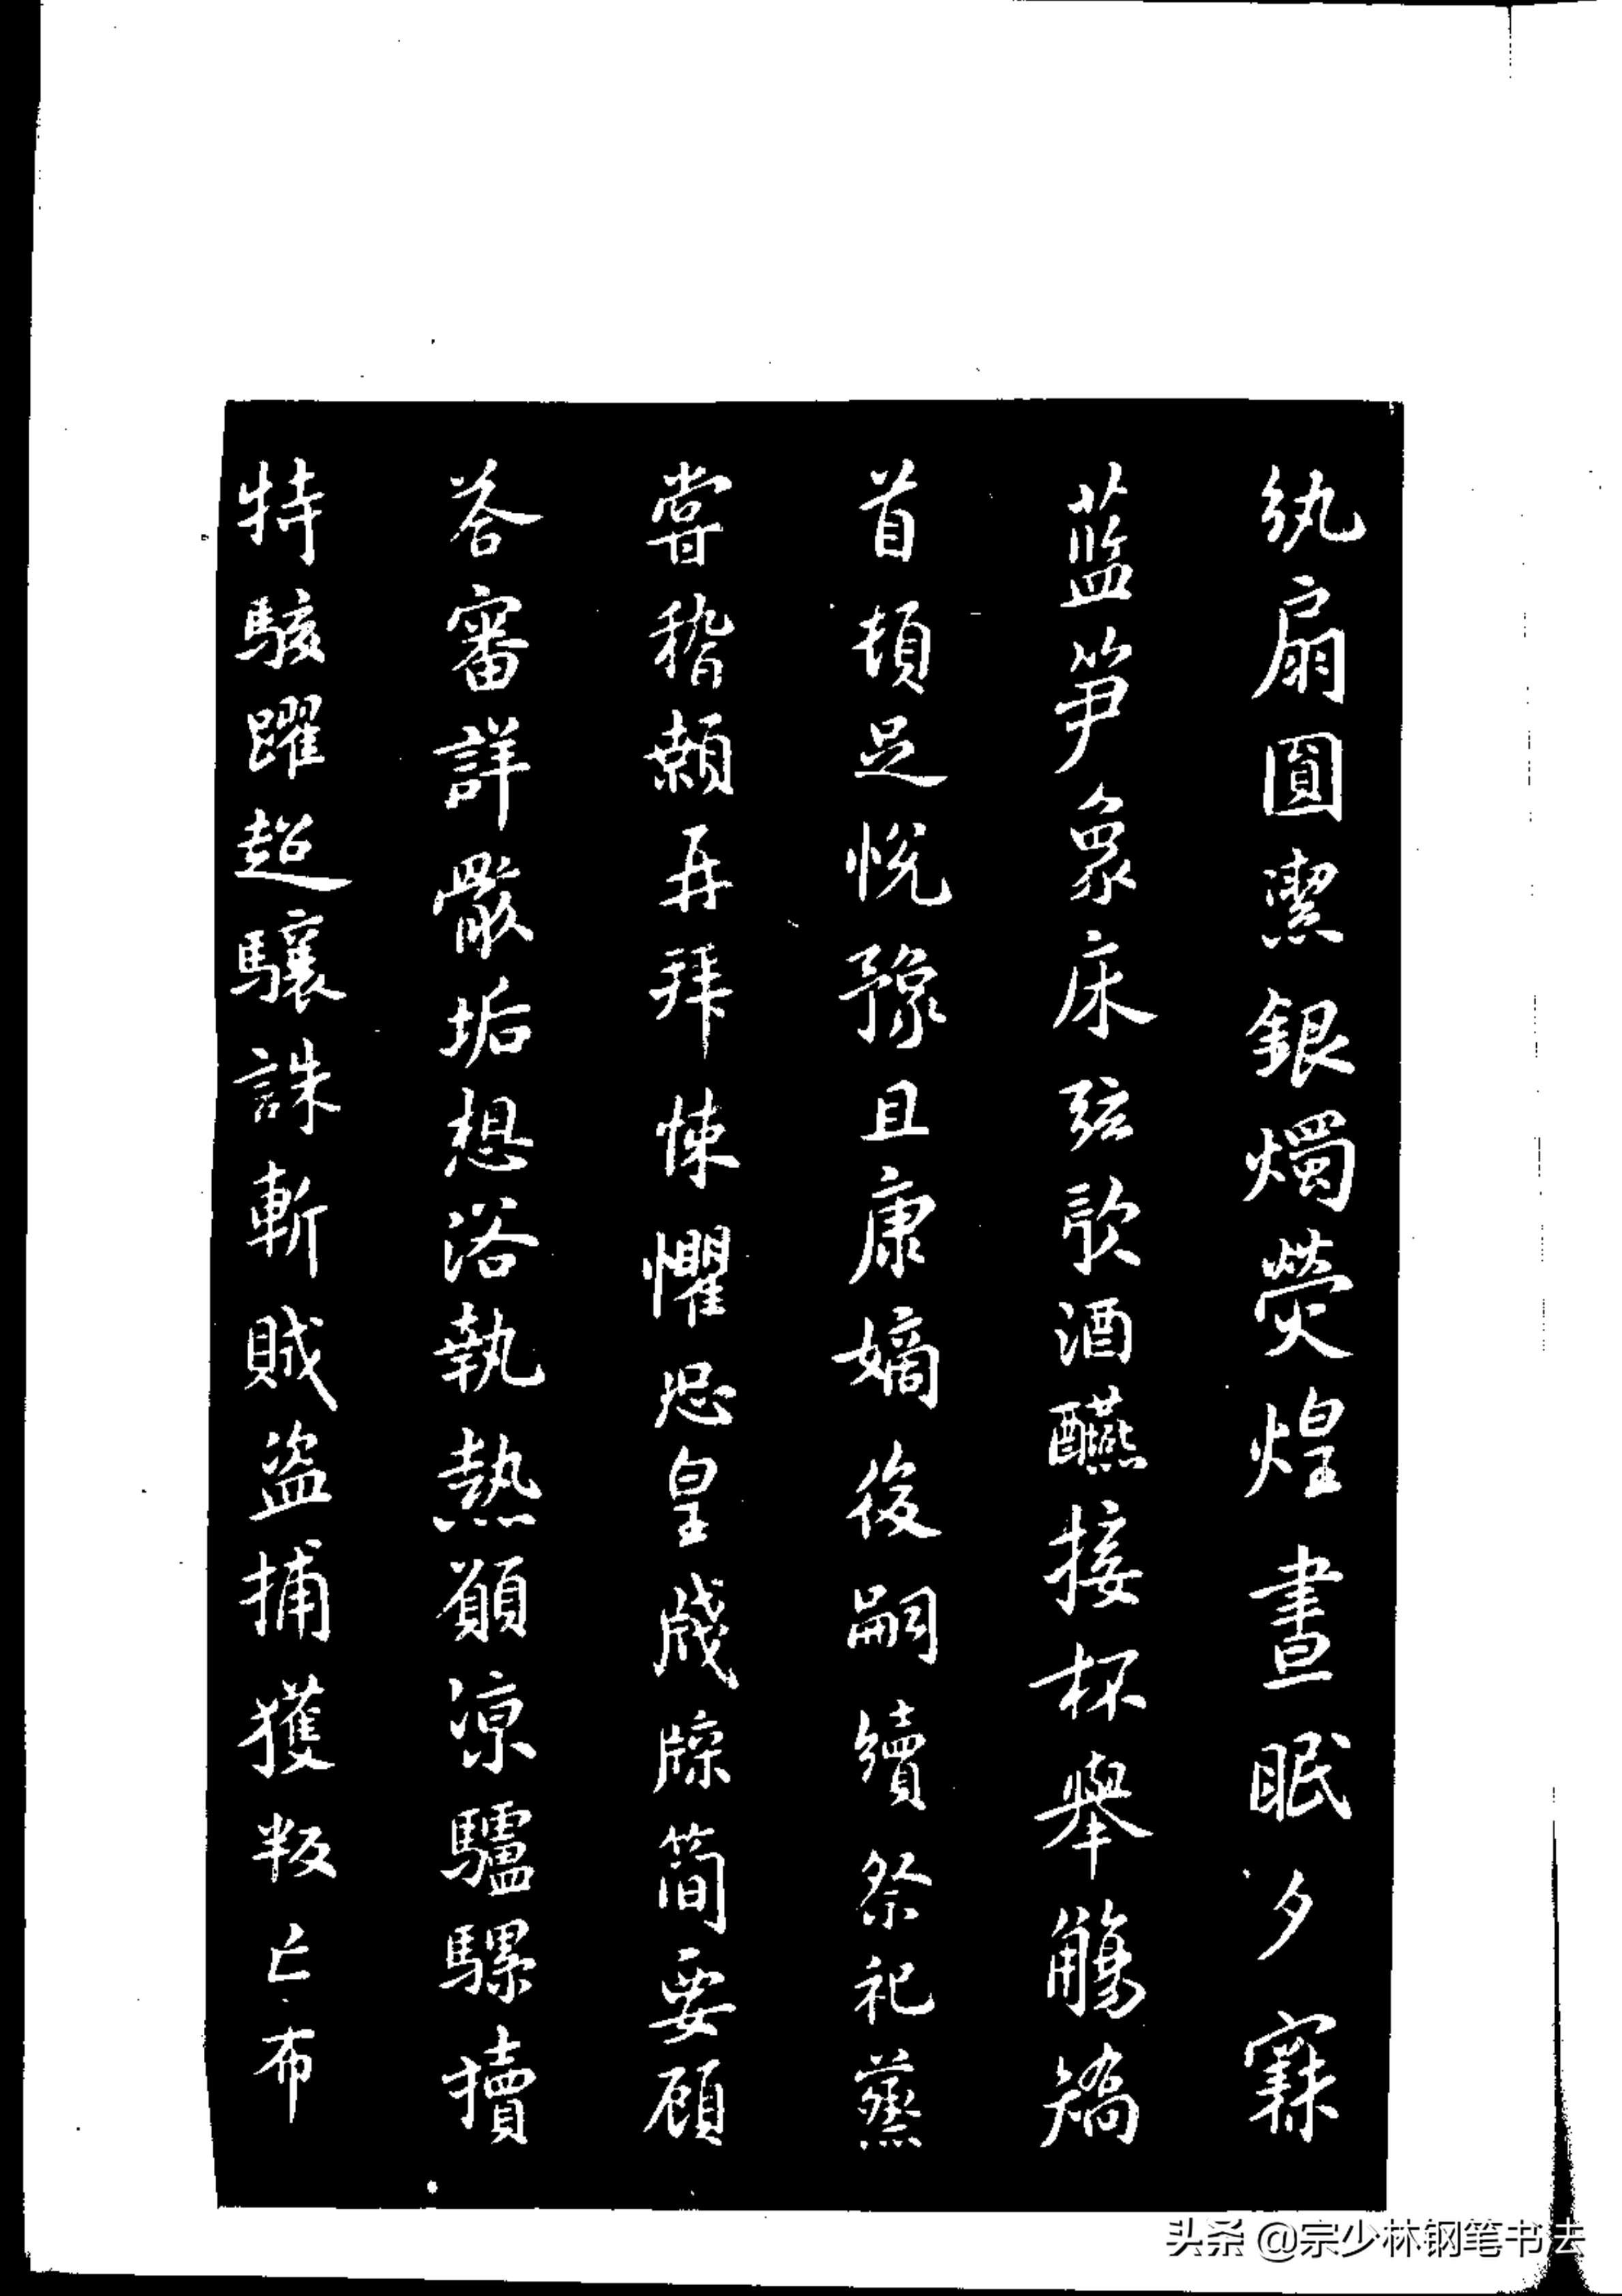 紈扇圓潔銀燭熒煌晝眠夕寐
藍笋象床弦歌酒讌接杯舉觴矯
首頓足悅豫且康嫡後嗣續祭祀蒸
嘗稽顙再拜悚懼恐皇牋牒簡要顧
荅審詳骸垢想浴執熱願涼驢騾犢
特駭躍超驤誅斬賊盜捕獲叛亡布
头条 @宗少林钢笔书法